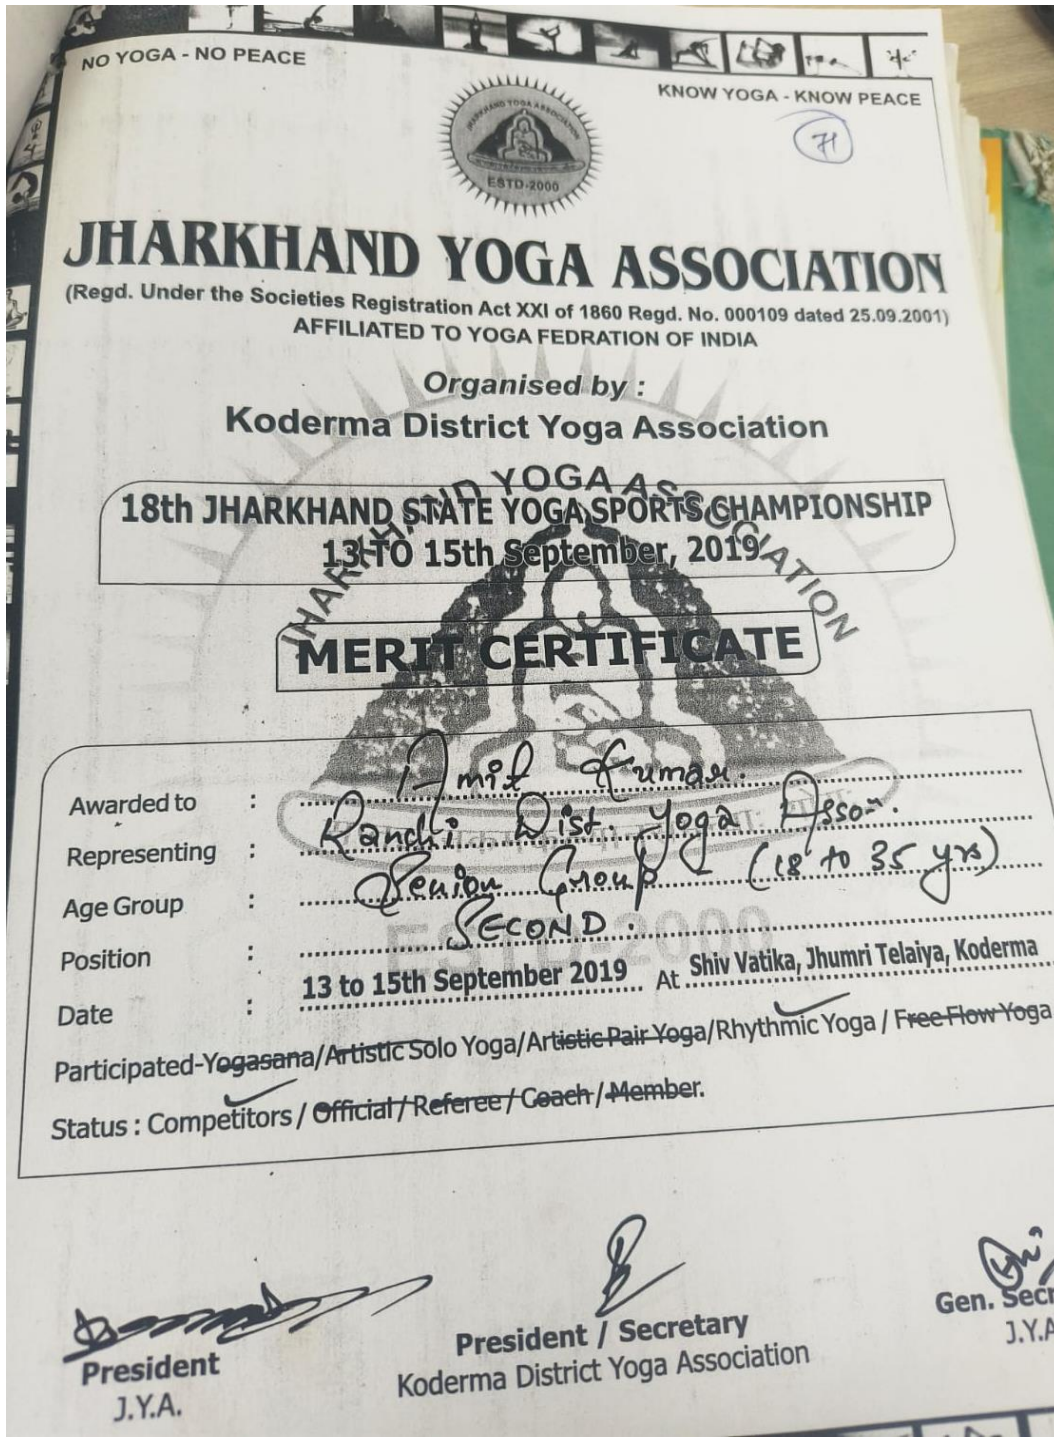 NO YOGA - NO PEACE
KNOW YOGA - KNOW PEACE
71
JHARKHAND YOGA ASSOCIATION
ESTD-2000
JHARKHAND YOGA ASSOCIATION
(Regd. Under the Societies Registration Act XXI of 1860 Regd. No. 000109 dated 25.09.2001)
AFFILIATED TO YOGA FEDRATION OF INDIA
Organised by :
Koderma District Yoga Association
JHARKHAND YOGA ASSOCIATION
18th JHARKHAND STATE YOGA SPORTS CHAMPIONSHIP
13 TO 15th September, 2019
MERIT CERTIFICATE
Awarded to : Amit Kumar.
Representing : Ranchi Dist. Yoga Asson.
Age Group : Senior Group (18 to 35 yrs)
Position : SECOND.
ESTD-2000
Date : 13 to 15th September 2019 At Shiv Vatika, Jhumri Telaiya, Koderma
Participated-Yogasana/Artistic Solo Yoga/Artistic Pair Yoga/Rhythmic Yoga / Free Flow Yoga
Status : Competitors / Official / Referee / Coach / Member.
President
J.Y.A.
President / Secretary
Koderma District Yoga Association
Gen. Secr
J.Y.A